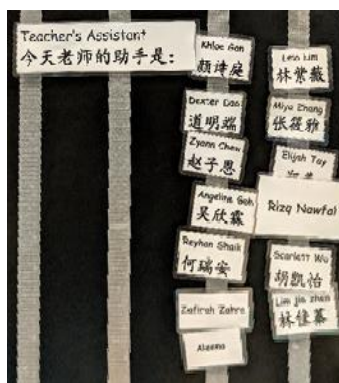 Teacher's Assistant
今天老师的助手是：
Khloe Gan
颜诗庭
Dexter Dao
道明端
Zyann Chew
赵子恩
Angeline Goh
吴欣霖
Reyhan Shaik
何瑞安
Zafirah Zahra
Aleena
林紫薇
Miya Zhang
张筱雅
Elijah Tay
Rizq Nawfal
Scarlett Wu
胡凯怡
Lim Jia Zhen